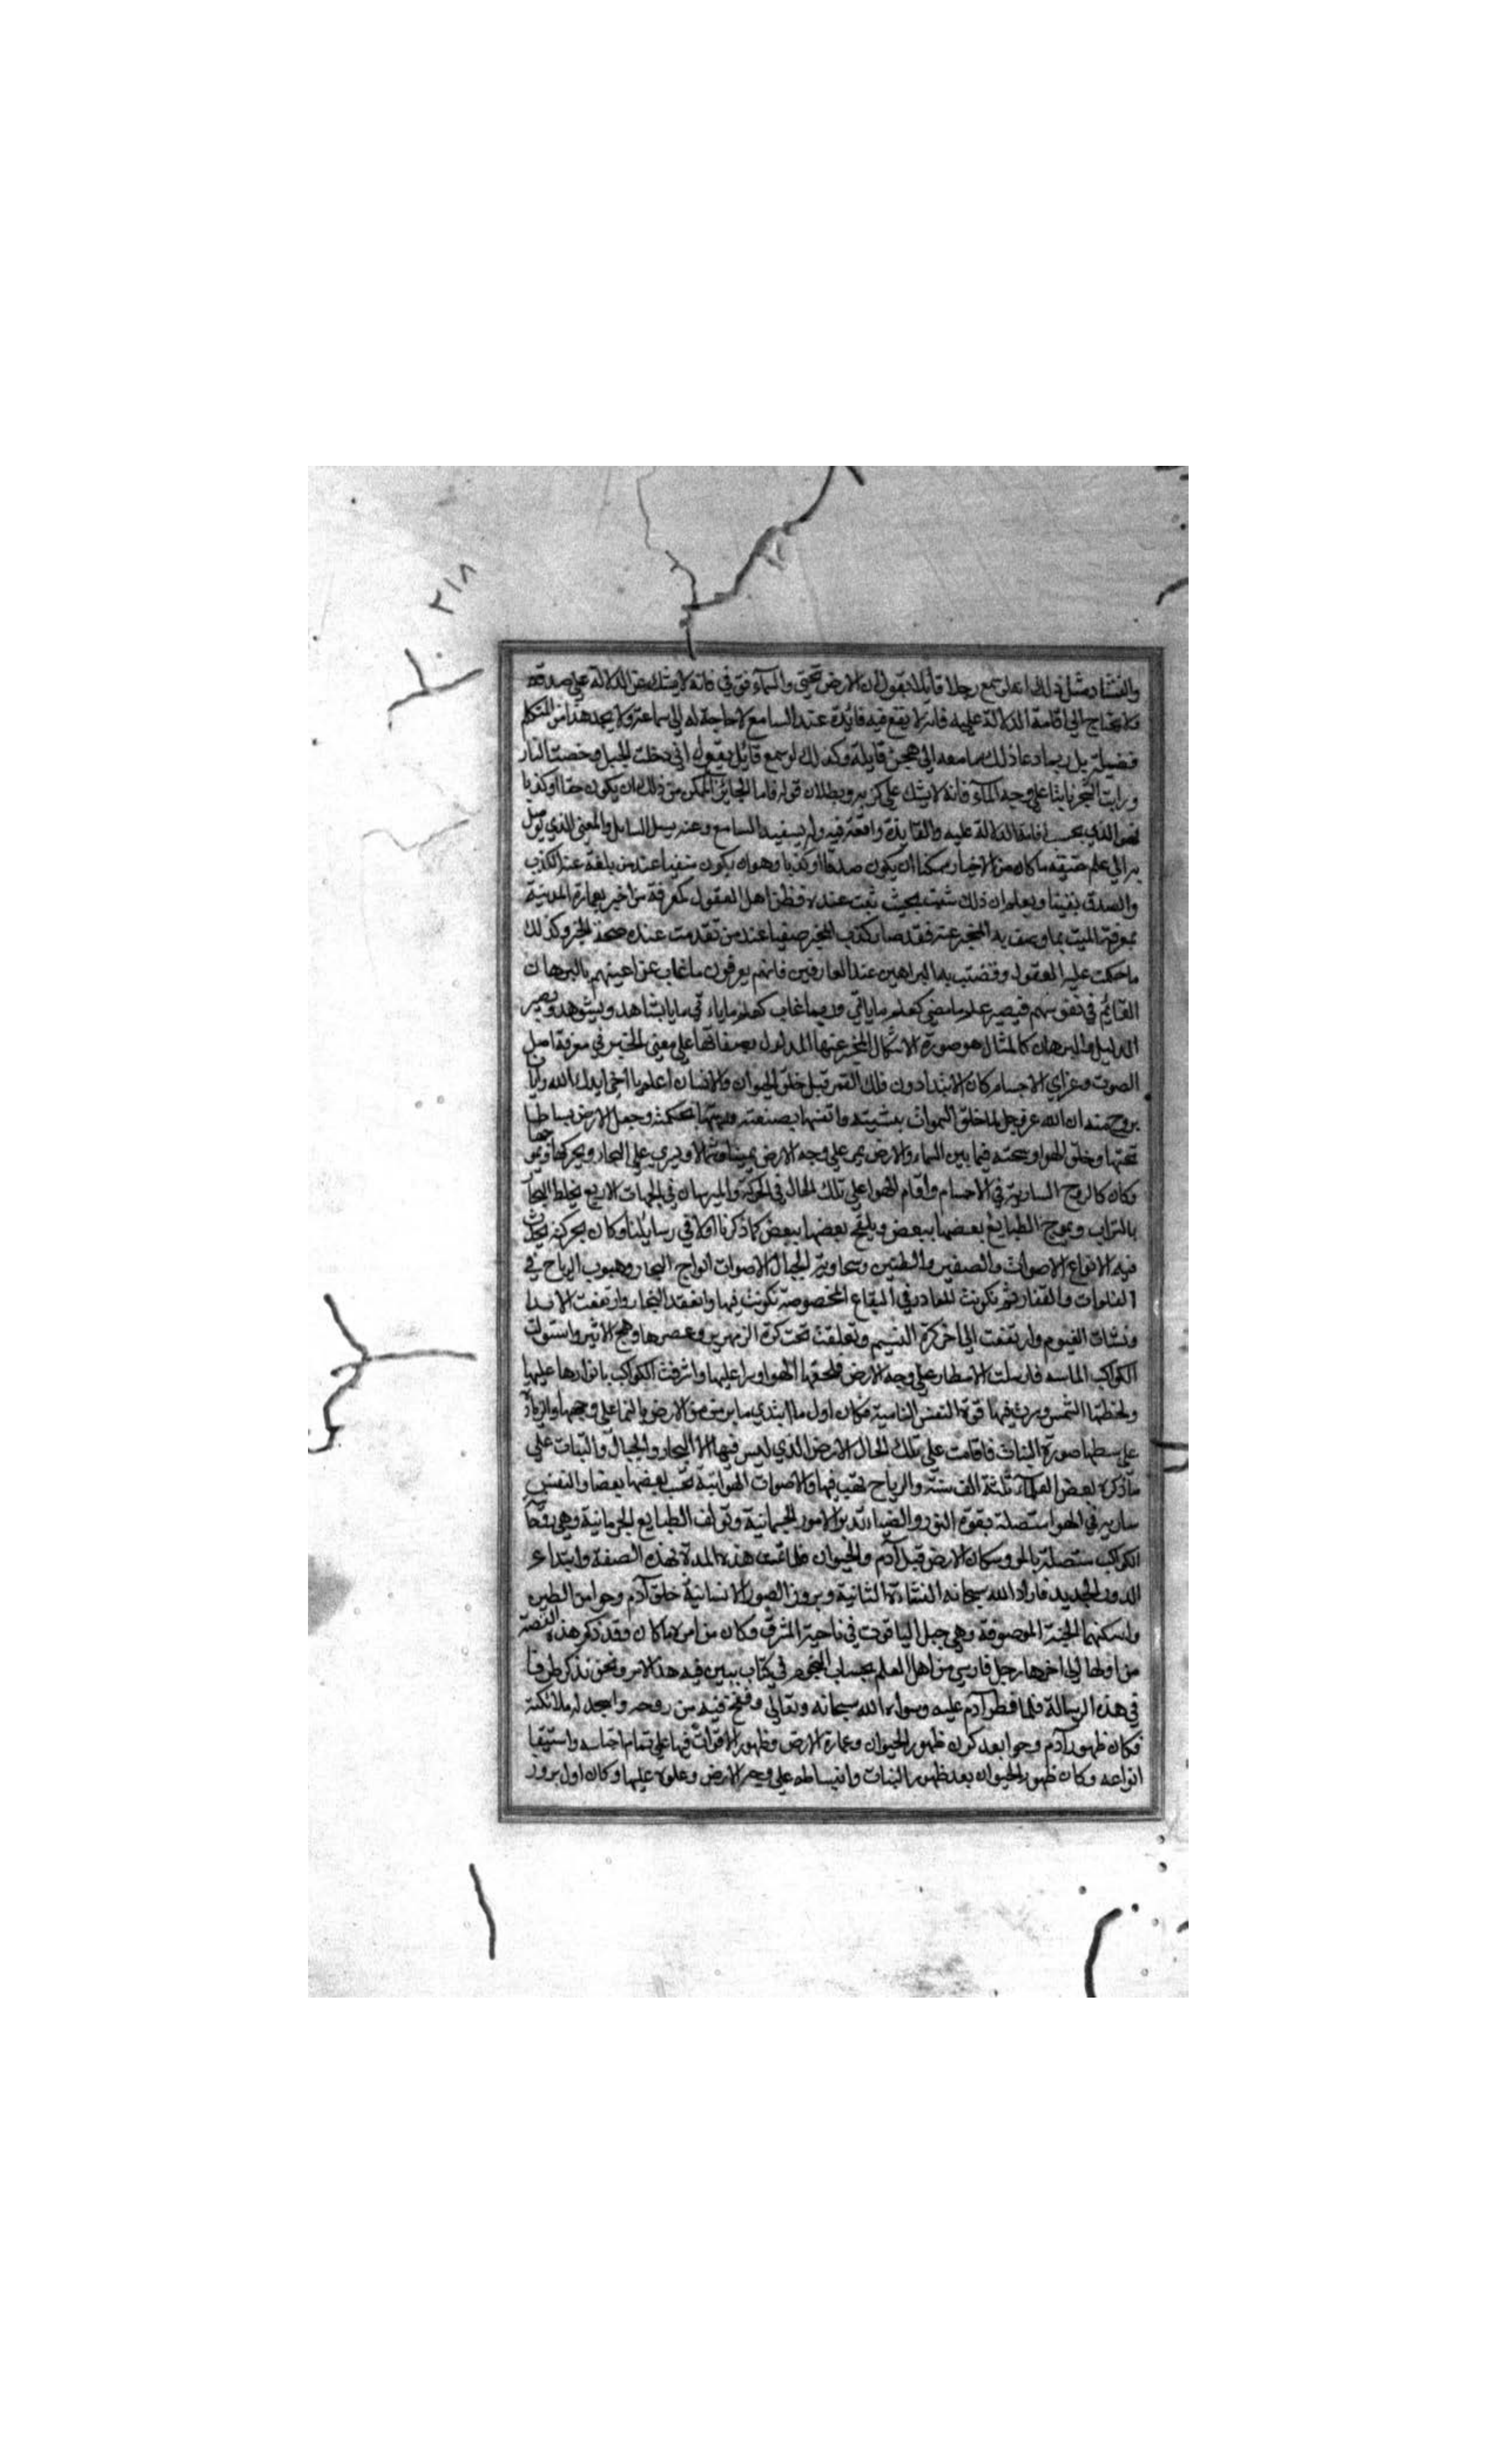 ٢١٨
والفساد مثل ذلك انه لو سمع رجلا قايلا يقول ان الارض تحتي والسماء فوقي فانه لا يشك عن الدلالة علي صدقه
ولا يحتاج الي اقامة الدلالة عليه فانه لا يقع فيه فائدة عند السامع لا حاجة له الي سماعه ولا يجد هذا من المتكلم
فضيلة بل ربما دعا ذلك سامعه الي هجن قايله وكذلك لو سمع قائل يقول اني دخلت الجبل وخضت النار
ورايت الشجر نابتا علي وجه الماء فانه لا يشك علي كذبه وبطلان قوله فاما الجايز الممكن من ذلك ان يكون حقا او كذبا
فهو الذي يحسن اقامة الدلالة عليه والفايدة واقعة فيه وله يستفيد السامع وعنه يسل السايل والمعني الذي يوصل
به الي علم حقيقه ما كان من الاخبار ممكنا ان يكون صدقا او كذبا وهو ان يكون منفيا عند من بلغه عنه الكذب
والصدق يقينا ويعلم ان ذلك شيت بحيث ثبت عنده فظن اهل العقول كمعرفة من اخبر بعمارة المدينة
بمعرفة الميت بما وصف به المخبر عنه فقد صار كذب المخبر صفيا عند من تقدمت عنده صحة الخبر وكذلك
ما حكمت عليه العقول وقضت به البراهين عند العارفين فانهم يعرفون ما غاب عن اعينهم بالبرهان
القائم في نفوسهم فيصير علم ما مضي كعلم ما ياتي وفيما غاب كعلم ما ياء تي ما يا يشاهد ويشوهد ويصير
الدليل والبرهان كالمثال هو صورة الاشكال المخبر عنها المدلول بصفاتها علي معني الحس في معرفة اصل
الصوت وعن اي الاجسام كان الابتدا دون فلك القمر قبل خلق الحيوان والانسان اعلم يا اخي ايدك الله وايانا
بروح منه ان الله عز وجل لما خلق السموات بمشيته واتقنها بصنعته ورتبها بحكمته وجعل الارض بساطا
تحتها وخلق الهوا وبحته فيما بين السماء والارض يمر علي وجه الارض يمينا وشمالا ويري علي البحار ويحركها ويموجها
وكان كالروح السارية في الاجسام واقام الهوا علي تلك الحال في الحركة والميهان في الجهات الاربع يخلط البحار
بالتراب ويموج الطبايع بعضها ببعض ويلقح بعضها ببعض كما ذكرنا اولا في رسايلنا وكان بحركته يحدث
فيه الانواع الاصوات والصفير والطنين وتجاوبه الجبال الاصوات امواج البحار وهبوب الرياح في
الفلوات والقفار ثم تكونت المعادن في البقاع المخصوصة بكونت فيها وانعقد البخار وارتفعت الاندا
ونشات الغيوم وارتفعت الي اخر كرة النسيم وتعلقت تحت كرة الزمهرير وعصرها وهج الاثير واستولت
الكواكب المائيه فارسلت الامطار علي وجه الارض فلحقها الهوا ومرا عليها واشرقت الكواكب بانوارها عليها
ولحظتها الشمس وسرت فيها قوة النفس النامية فكان اول ما ابتدي ما برز من الارض والنما علي وجهها وازداد
علي سطها صورة النبات فاقامت علي تلك الحال الارض الذي ليس فيها الا البحار والجبال والنبات علي
ما ذكره بعض العلماء ثلثة الف سنة والرياح تهب فيها والاصوات الهوائية تحب بعضها بعضا والنفس
ساريه في الهوا متصلة بقوة النور والضياء تدبر الامور الجسمانية وتولف الطبايع الجرمانية وهي روحانية
الكواكب متصلة بالجو وسكان الارض قبل آدم والحيوان فلما تمت هذه المدة بهذه الصفة وابتداء
الدور الجديد فاراد الله سبحانه النشاءة الثانية وبروز الصور الانسانية خلق آدم وحوا من الطين
واسكنهما الجنة الموصوفة وهي جبل الياقوت في ناحية المشرق وكان من امره ما كان وقد ذكر هذه القصة
من اولها الي اخرها رجل فارسي من اهل العلم بحساب النجوم في كتاب يبين فيه هذا الامر ونحن نذكر طرفا
في هذه الرسالة فلما فطر آدم عليه وسواه الله سبحانه وتعالي ونفخ فيه من روحه واسجد له ملائكته
فكان ظهور آدم وحوا بعد كون ظهور الحيوان وعمارة الارض وظهور الاقوات فيها علي تمام اجناسه واستيفا
انواعه وكان ظهور الحيوان بعد ظهور النبات وانبساطه علي وجه الارض وعلوه عليها وكان اول بروز